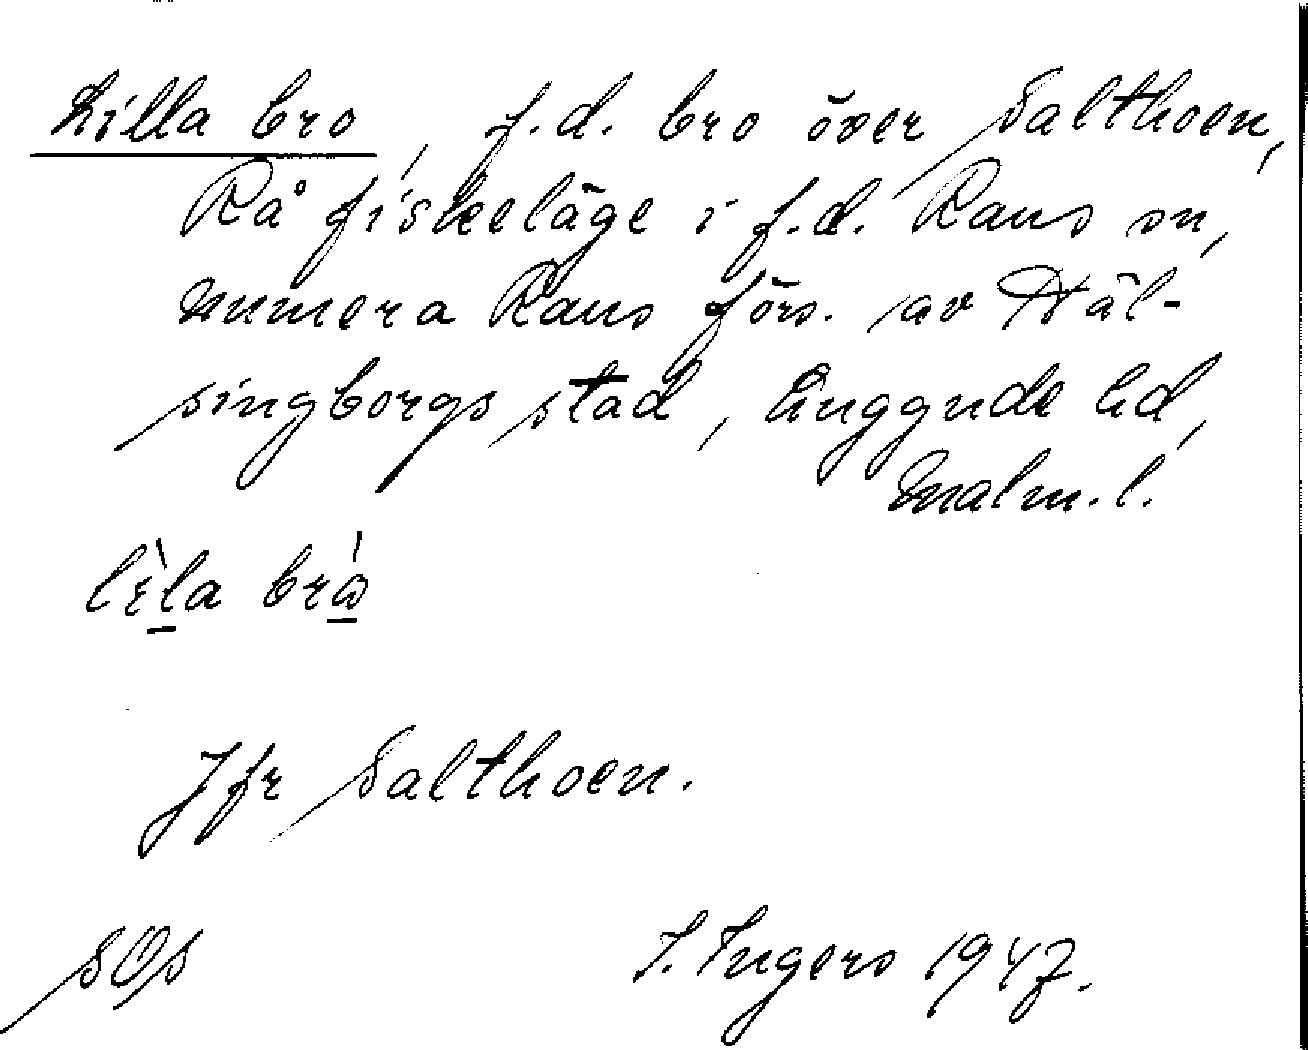 Lilla bro, f.d. bro över Salthoen,
Rå fiskeläge i f.d. Raus sn,
numera Raus förs. av Häl-
singborgs stad, Luggude hd,
Malm.l.
lìla bró
Jfr Salthoen.
SOS I. Ingers 1947.